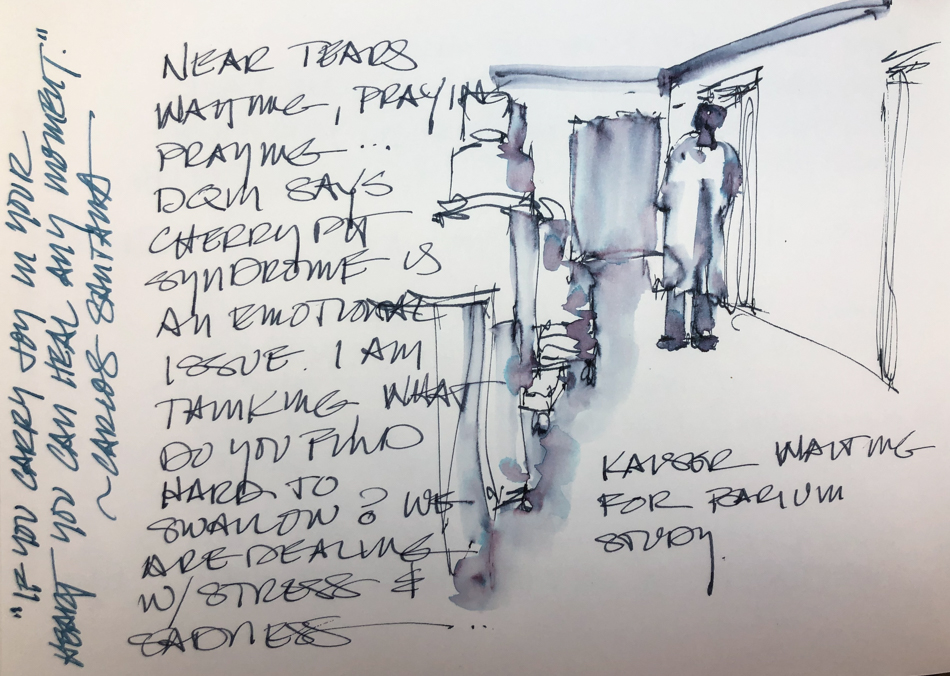 "IF YOU CARRY JOY IN YOUR
HEART YOU CAN HEAL ANY MOMENT."
~ CARLOS SANTANA
NEAR TEARS
WAITING, PRAYING
PRAYING...
DQM SAYS
CHERRY PIT
SYNDROME IS
AN EMOTIONAL
ISSUE. I AM
THINKING WHAT
DO YOU FIND
HARD TO
SWALLOW? WE
ARE DEALING
W/STRESS &
SADNESS...
KAISER WAITING
FOR BARIUM
STUDY.